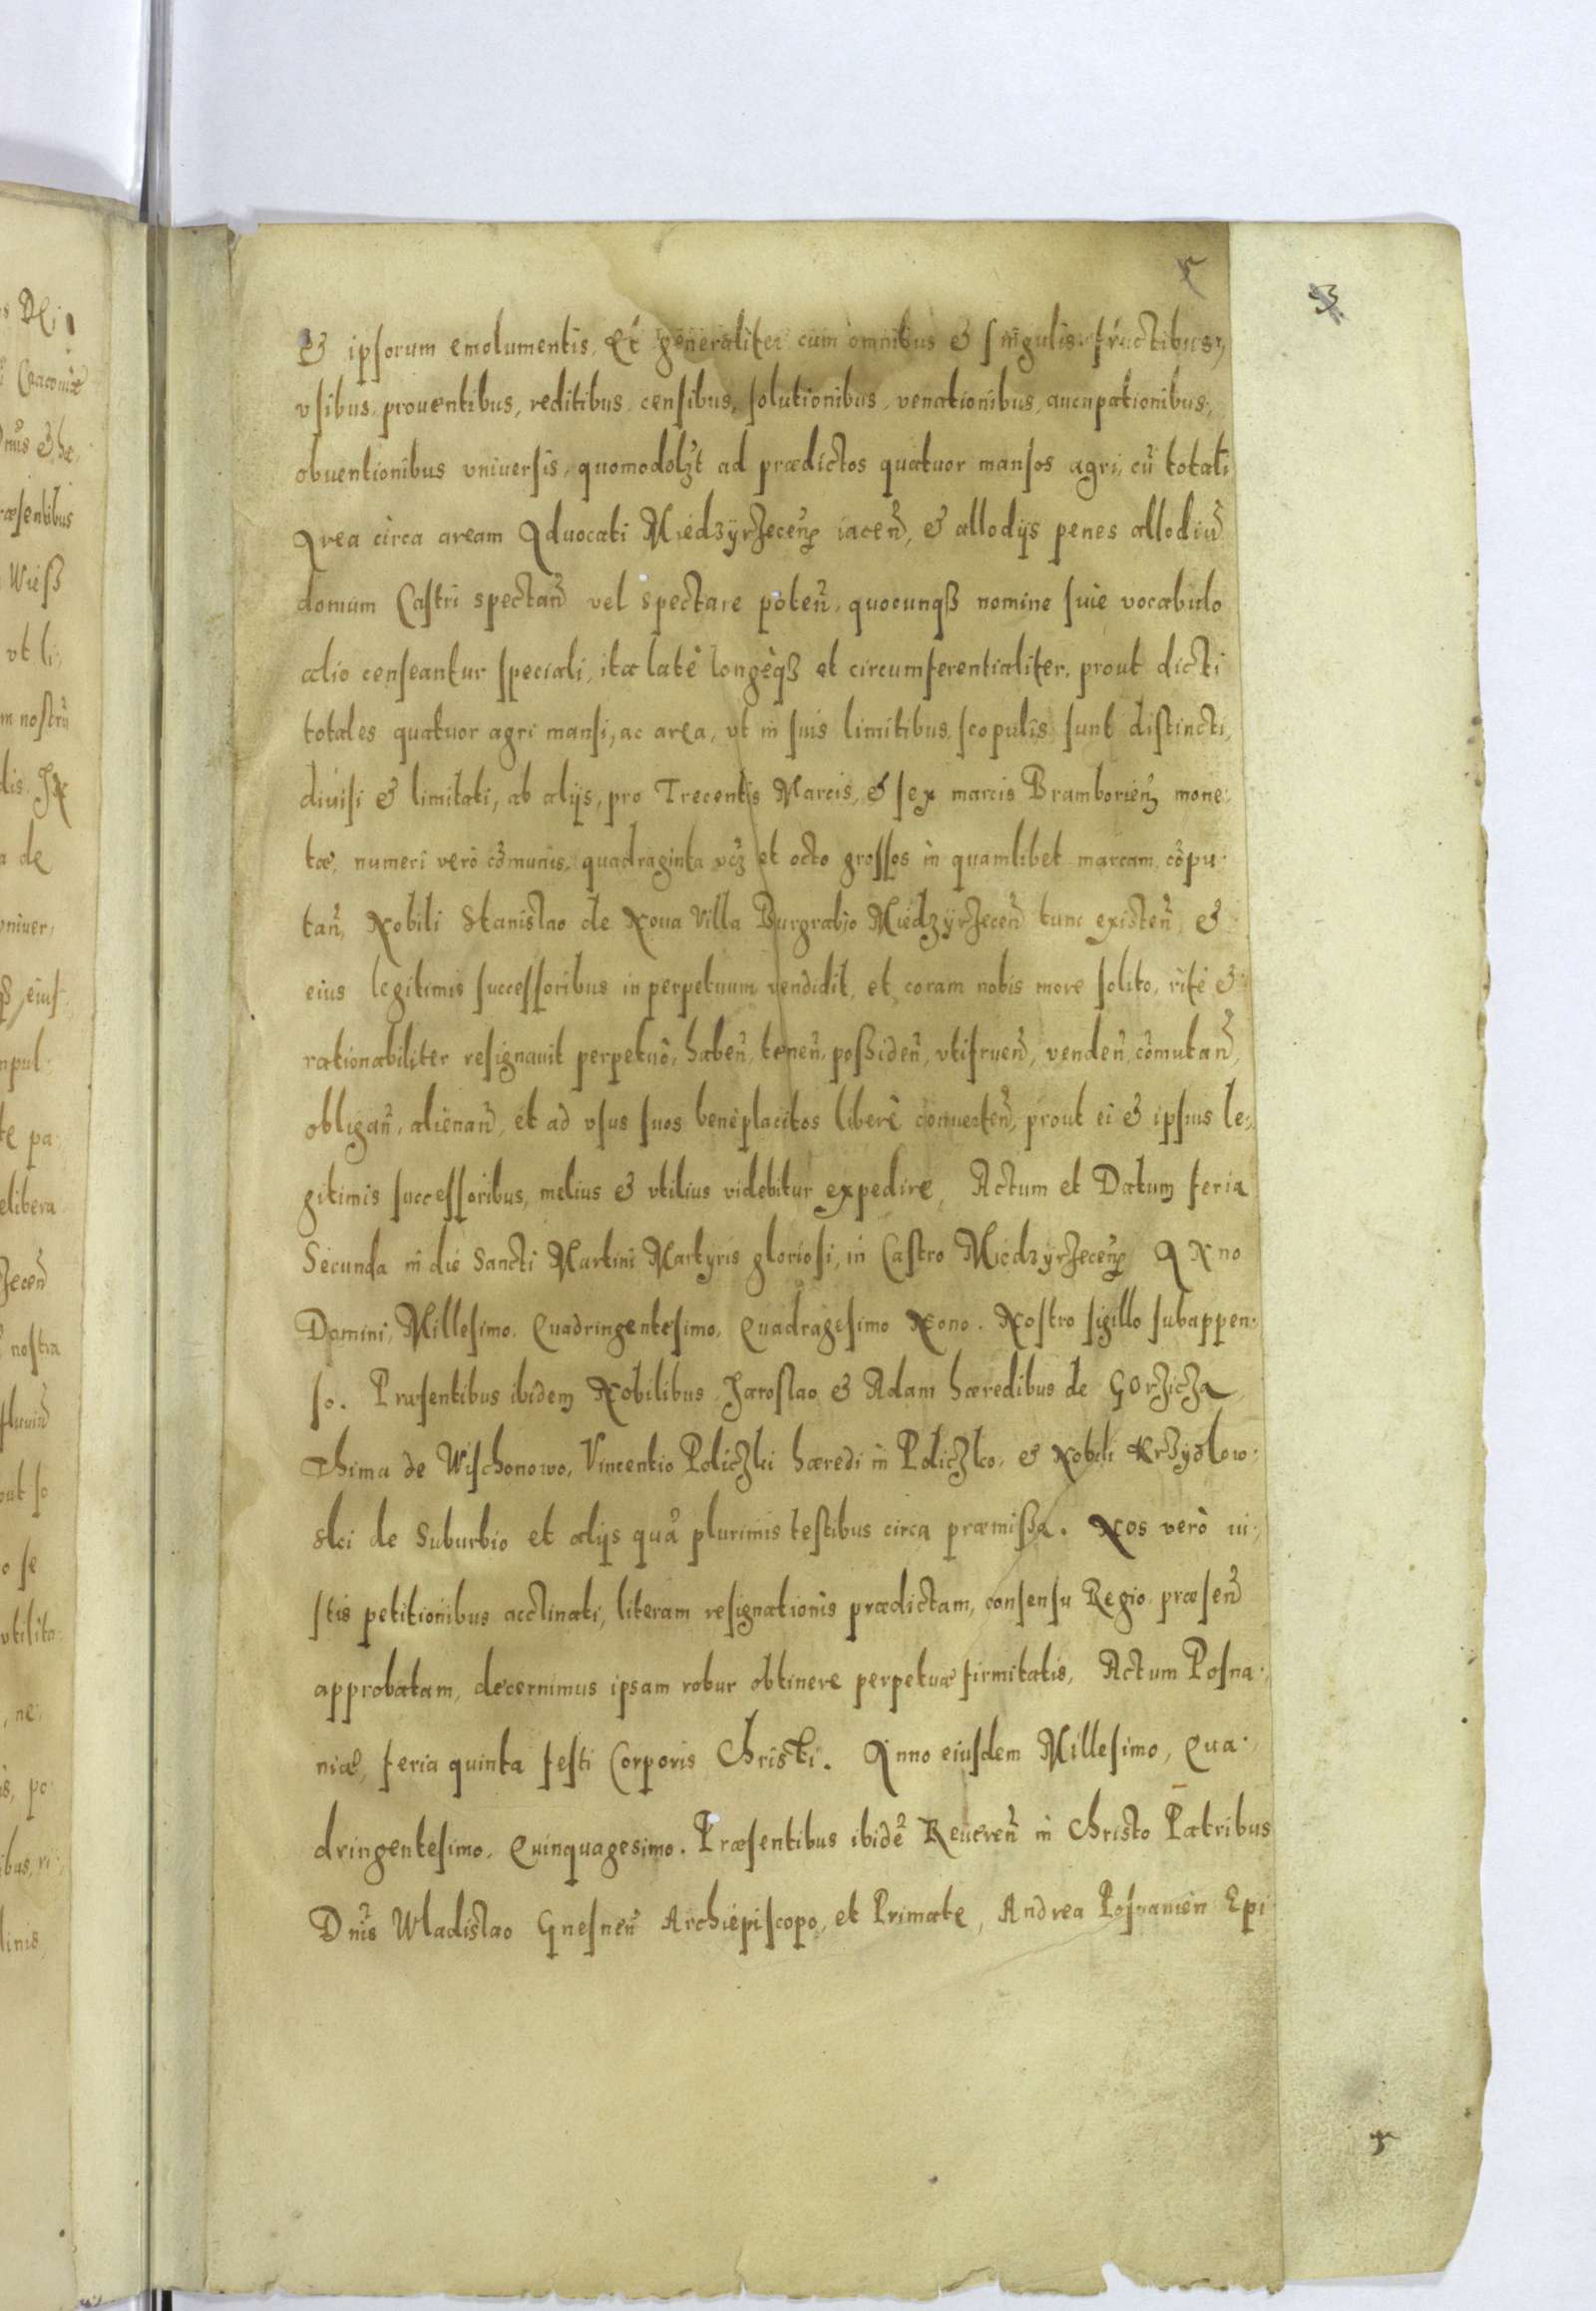 5
3
& ipsorum emolumentis, Et generaliter cum omnibus & singulis fructibus,
vsibus, prouentibus, reditibus, censibus, solutionibus, venationibus, aucupationibus,
obuentionibus vniuersis, quomodolʒt ad prædictos quatuor mansos agri, cū totali
Area circa aream Aduocati Miedzÿrzecen̄ iacen̄, & allodijs penes allodiū
domum Castri spectan̄ vel spectare poten̄, quocunqß nomine siue vocabulo
alio censeantur speciali, ita latè longèqß et circumferentialiter, prout dicti
totales quatuor agri mansi, ac area, vt in suis limitibus, scopulis sunt distincti,
diuisi & limitati, ab alijs, pro Trecentis Marcis, & sex marcis Bramborien̄ mone,,
tæ, numeri verò cōmunis, quadraginta vcʒ et octo grossos in quamlibet marcam cōpu-
tan̄, Nobili Stanislao de Noua Villa Burgrabio Miedzÿrzecen̄ tunc existen̄ &
eius legitimis successoribus in perpetuum vendidit, et coram nobis more solito, ritè &
rationabiliter resignauit perpetuò, haben̄, tenen̄, poßiden̄, vtifruen̄, venden̄, cōmutan̄,
obligan̄, alienan̄, et ad vsus suos beneplacitos liberè conuerten̄, prout ei & ipsius le,,
gitimis successoribus, melius & vtilius videbitur expedire, Actum et Datum feria
Secunda in die Sancti Martini Martyris gloriosi, in Castro Miedzÿrzecen̄ ANno
Domini, Millesimo, Quadringentesimo, Quadragesimo Nono. Nostro sigillo subappen-
so. Præsentibus ibidem Nobilibus Jaroslao & Adam hæredibus de GOrzicza,
Thima de Wischonowo, Vincentio Policzki hæredi in Policzko, & Nobili Krzÿzkow-
ski de Suburbio et alijs quā plurimis testibus circa præmißa. NOs verò iu,,
stis petitionibus acclinati, literam resignationis prædictam, consensu Regio præsen̄
approbatam, decernimus ipsam robur obtinere perpetuæ firmitatis, Actum Posna-
niæ, feria quinta festi Corporis Christi. Anno eiusdem Millesimo, Qua-
dringentesimo, Quinquagesimo. Præsentibus ibidē Reueren̄ in Christo Patribus
Dn̄is Wladislao Gnesnen̄ Archiepiscopo, et Primate, Andrea Posnanien Epi